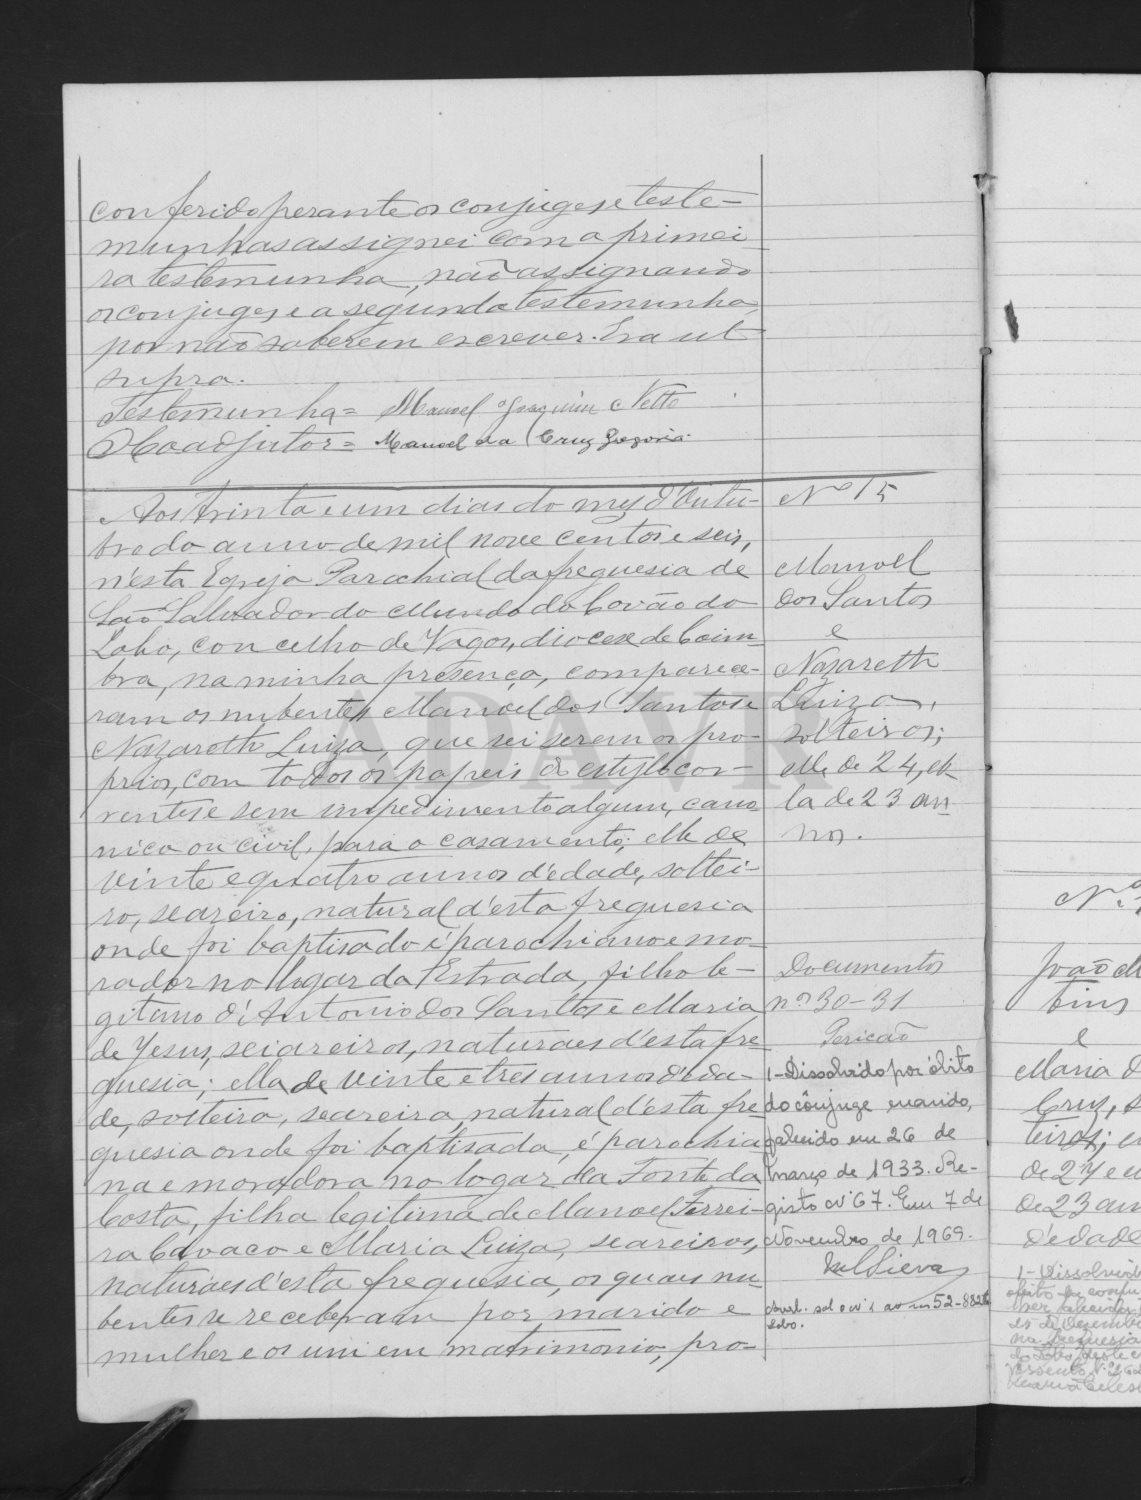 conferido perante os conjuges e teste-
munhas assignei com a primei-
ra testemunha, não assignando
os conjuges e a segunda testemunha,
por não saberem escrever. Era ut
supra.
Testemunha = Manoel Joaquim Netto
O Coadjutor = Manoel da Cruz
Nº 15
Manoel
dos Santos
e
Nazareth
Luiza,
solteiros;
elle de 24, el-
la de 23 an-
nos.
Aos trinta e um dias do mez d'Outu-
bro do anno de mil nove centos e seis,
n'esta Egreja Parochial da freguesia de
São Salvador do Mundo do Covão do
Lobo, concelho de Vagos, diocese de Coim-
bra, na minha presença, comparece-
ram os nubentes Manoel dos Santos e
Nazareth Luiza, que sei serem os pro-
prios, com todos os papeis do estylo cor-
rentes e sem impedimento algum, cano-
nico ou civil, para o casamento; elle de
vinte e quatro annos d'edade, soltei-
ro, seareiro, natural d'esta freguesia
onde foi baptisado é parochiano e mo-
rador no logar da Estrada, filho le-
gitimo d'Antonio dos Santos e Maria
de Jesus, seiareiros, naturaes d'esta fre-
guesia; ella de vinte e tres annos d'eda-
de, solteira, seareira, natural d'esta fre-
guesia onde foi baptisada, é parochia-
na e moradora no logar da Fonte da
Costa, filha legitima de Manoel Ferrei-
ra Cavaco e Maria Luiza, seareiros,
naturaes d'esta freguesia, os quaes nu-
bentes se receberam por marido e
mulher e os uni em matrimonio, pro-
Documentos
nos 30-31
1-Dissolvido por óbito
do cônjuge marido,
falecido em 26 de
março de 1933. Re-
gisto nº 67. Em 7 de
Novembro de 1969.
52-882
Lobo.
ADAVR
Nº
João M
tins
e
Maria d
Cruz, s
teiros; e
de 27 e e
de 23 an
d'edade
1-Dissolvid